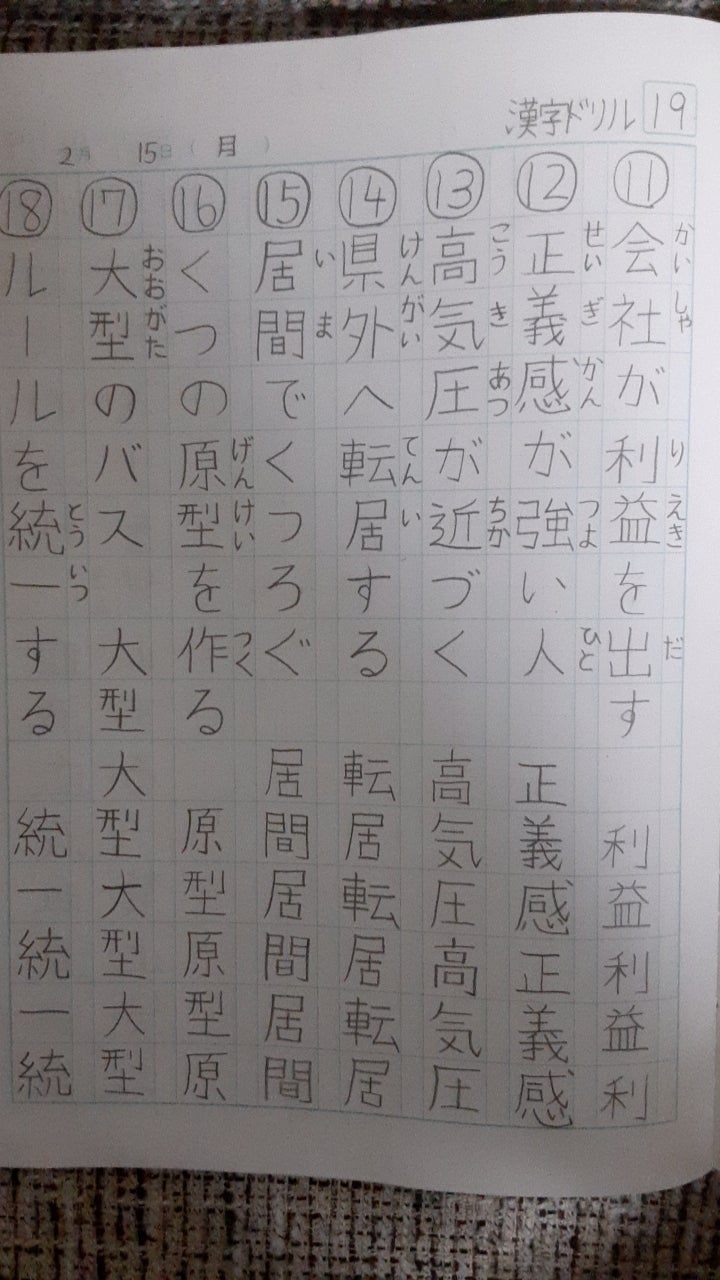 漢字ドリル 19
2月 15日（月）
⑪ 会社が利益を出す 利益利益利
かいしゃ りえき だ
⑫ 正義感が強い人 正義感正義感
せいぎかん つよ ひと
⑬ 高気圧が近づく 高気圧高気圧
こうきあつ ちか
⑭ 県外へ転居する 転居転居転居
けんがい てんい
⑮ 居間でくつろぐ 居間居間居間
いま
⑯ くつの原型を作る 原型原型原
げんけい つく
⑰ 大型のバス 大型大型大型大型
おおがた
⑱ ルールを統一する 統一統一統
とういつ